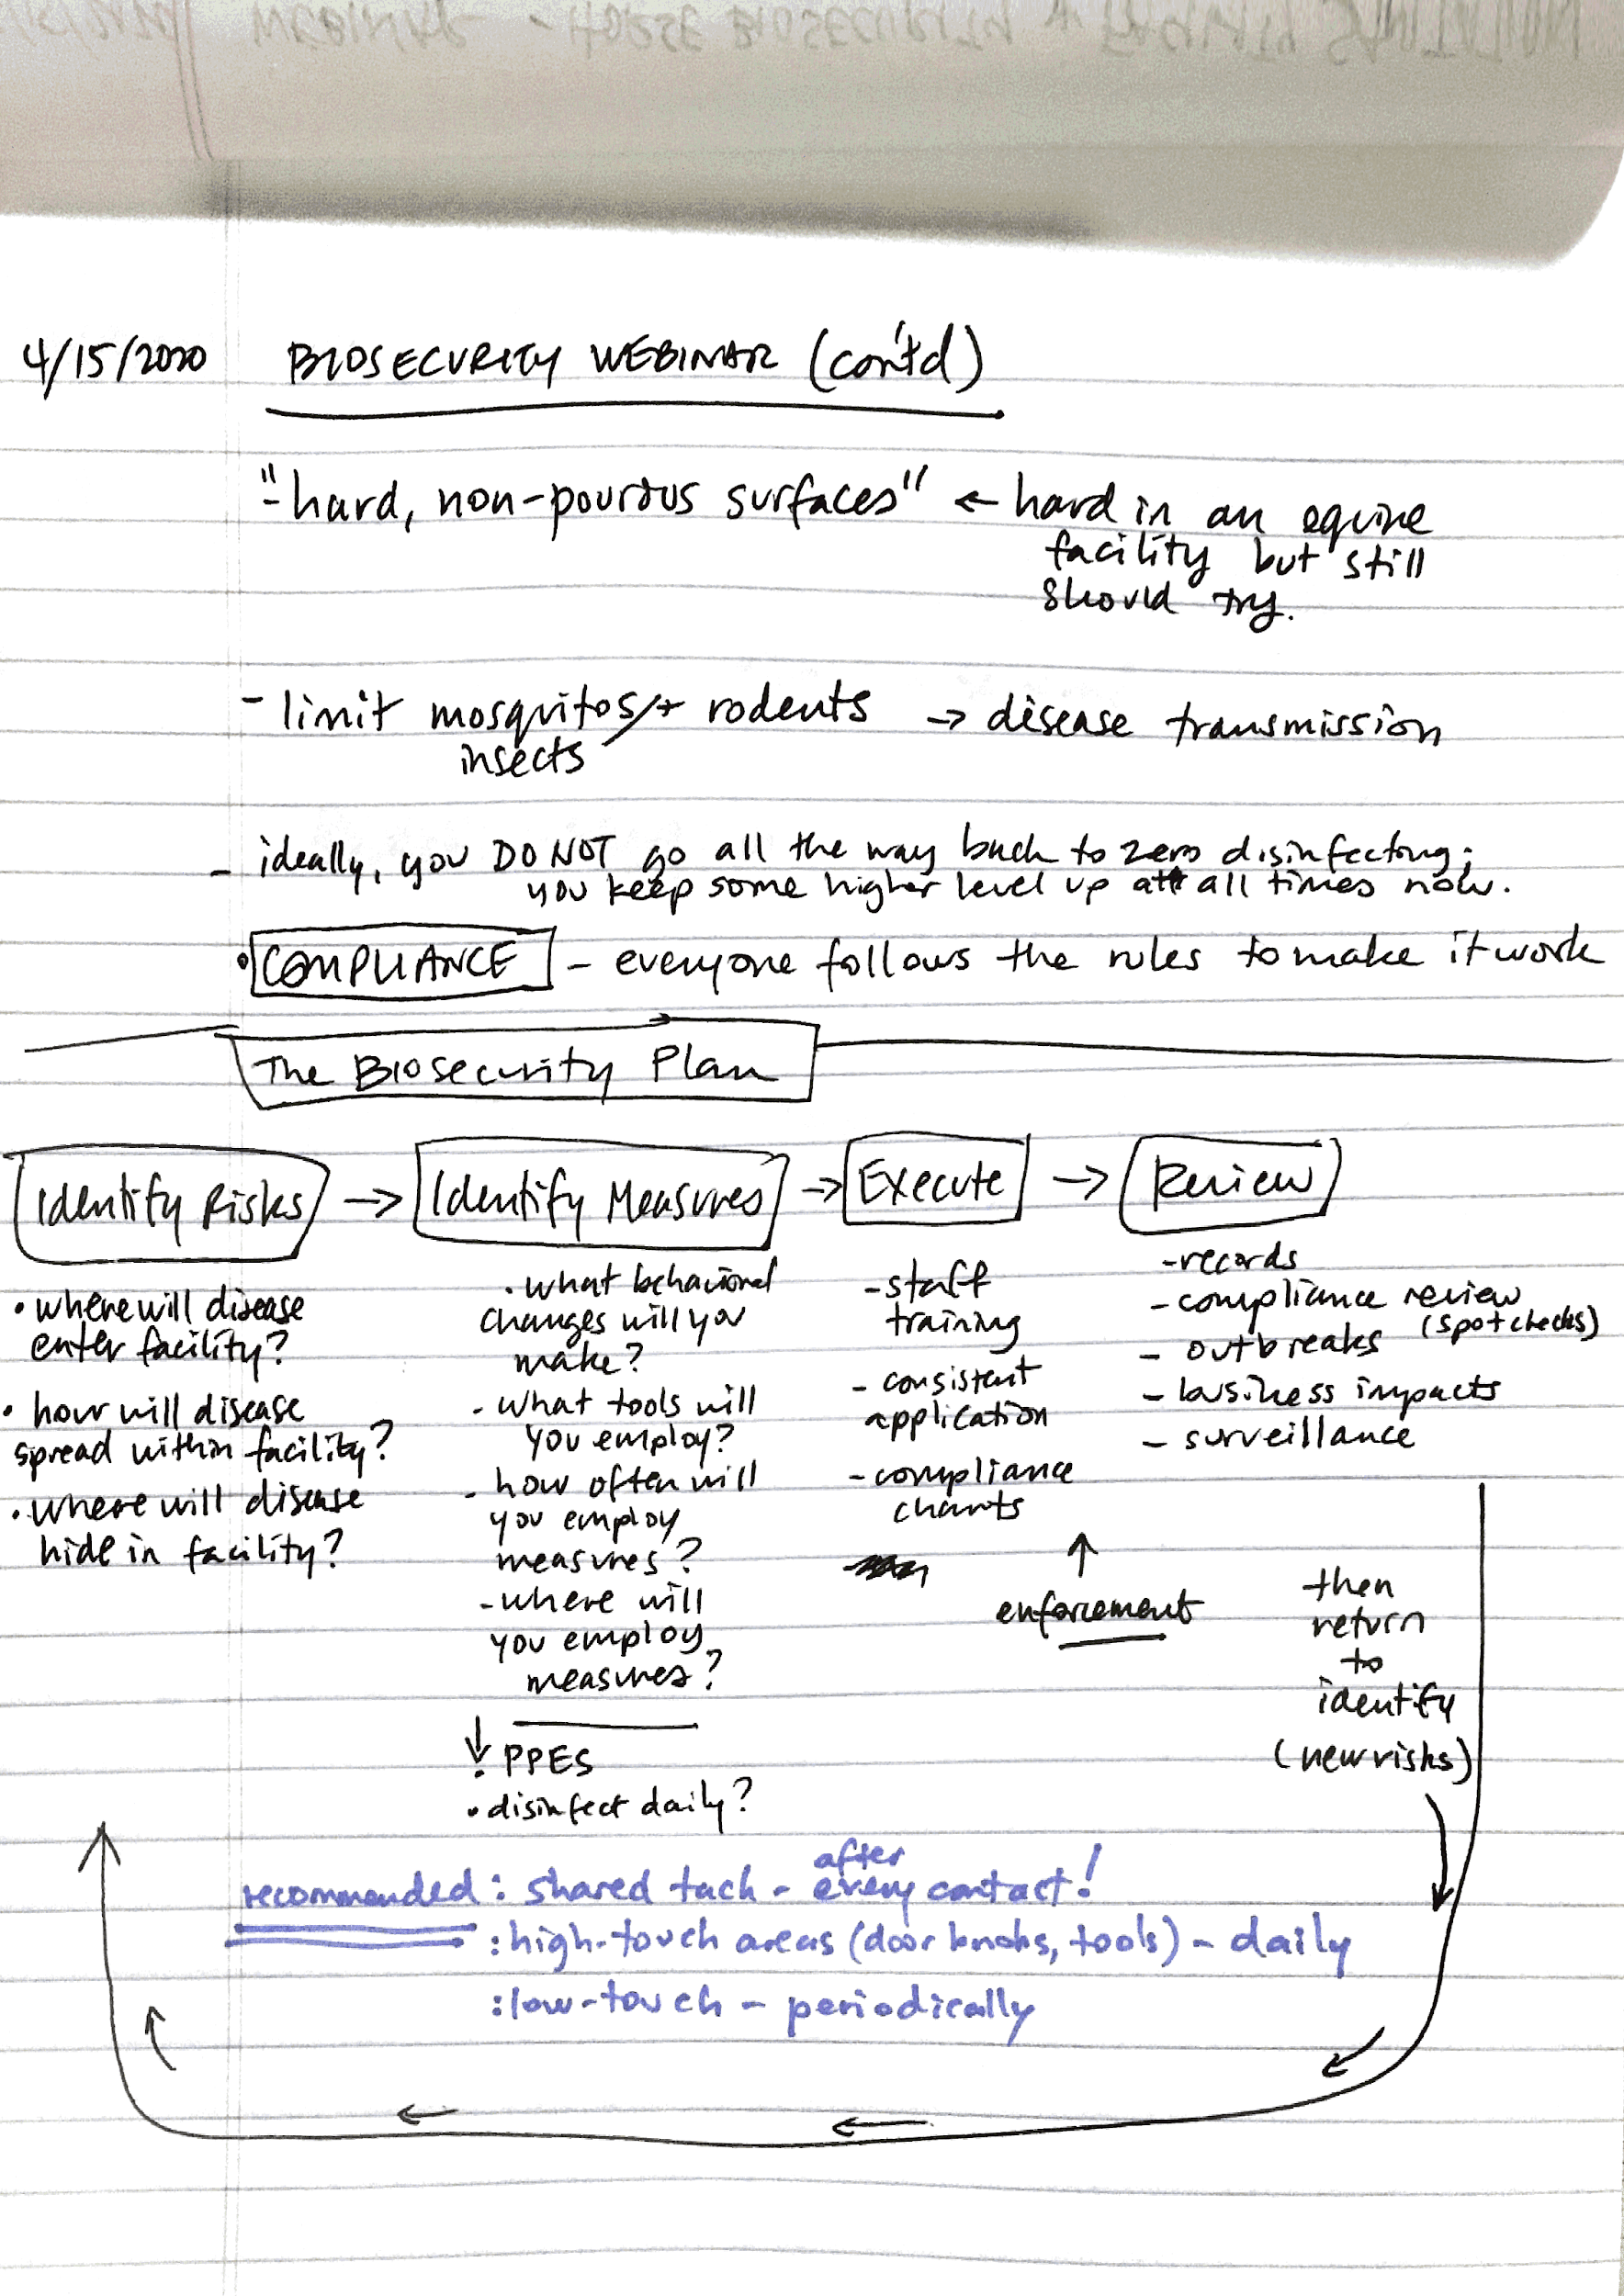 4/15/2020 BIOSECURITY WEBINAR (con'td)
"-hard, non-pourous surfaces" ← hard in an equine
facility but still
should try.
- limit mosquitos/+ rodents → disease transmission
insects
- ideally, you DO NOT go all the way back to zero disinfecting;
you keep some higher level up at all times now.
• COMPLIANCE - everyone follows the rules to make it work
The Biosecurity Plan
Identify Risks → Identify Measures → Execute → Review
• where will disease
enter facility?
• how will disease
spread within facility?
• where will disease
hide in facility?
• what behavioral
changes will you
make?
- what tools will
you employ?
- how often will
you employ
measures?
- where will
you employ
measures?
↓ • PPES
• disinfect daily?
- staff
training
- consistent
application
- compliance
charts
↑
enforcement
- records
- compliance review
(spot checks)
- outbreaks
- business impacts
- surveillance
then
return
to
identify
(new risks)
recommended: shared tack - after every contact!
: high-touch areas (door knobs, tools) - daily
: low-touch - periodically